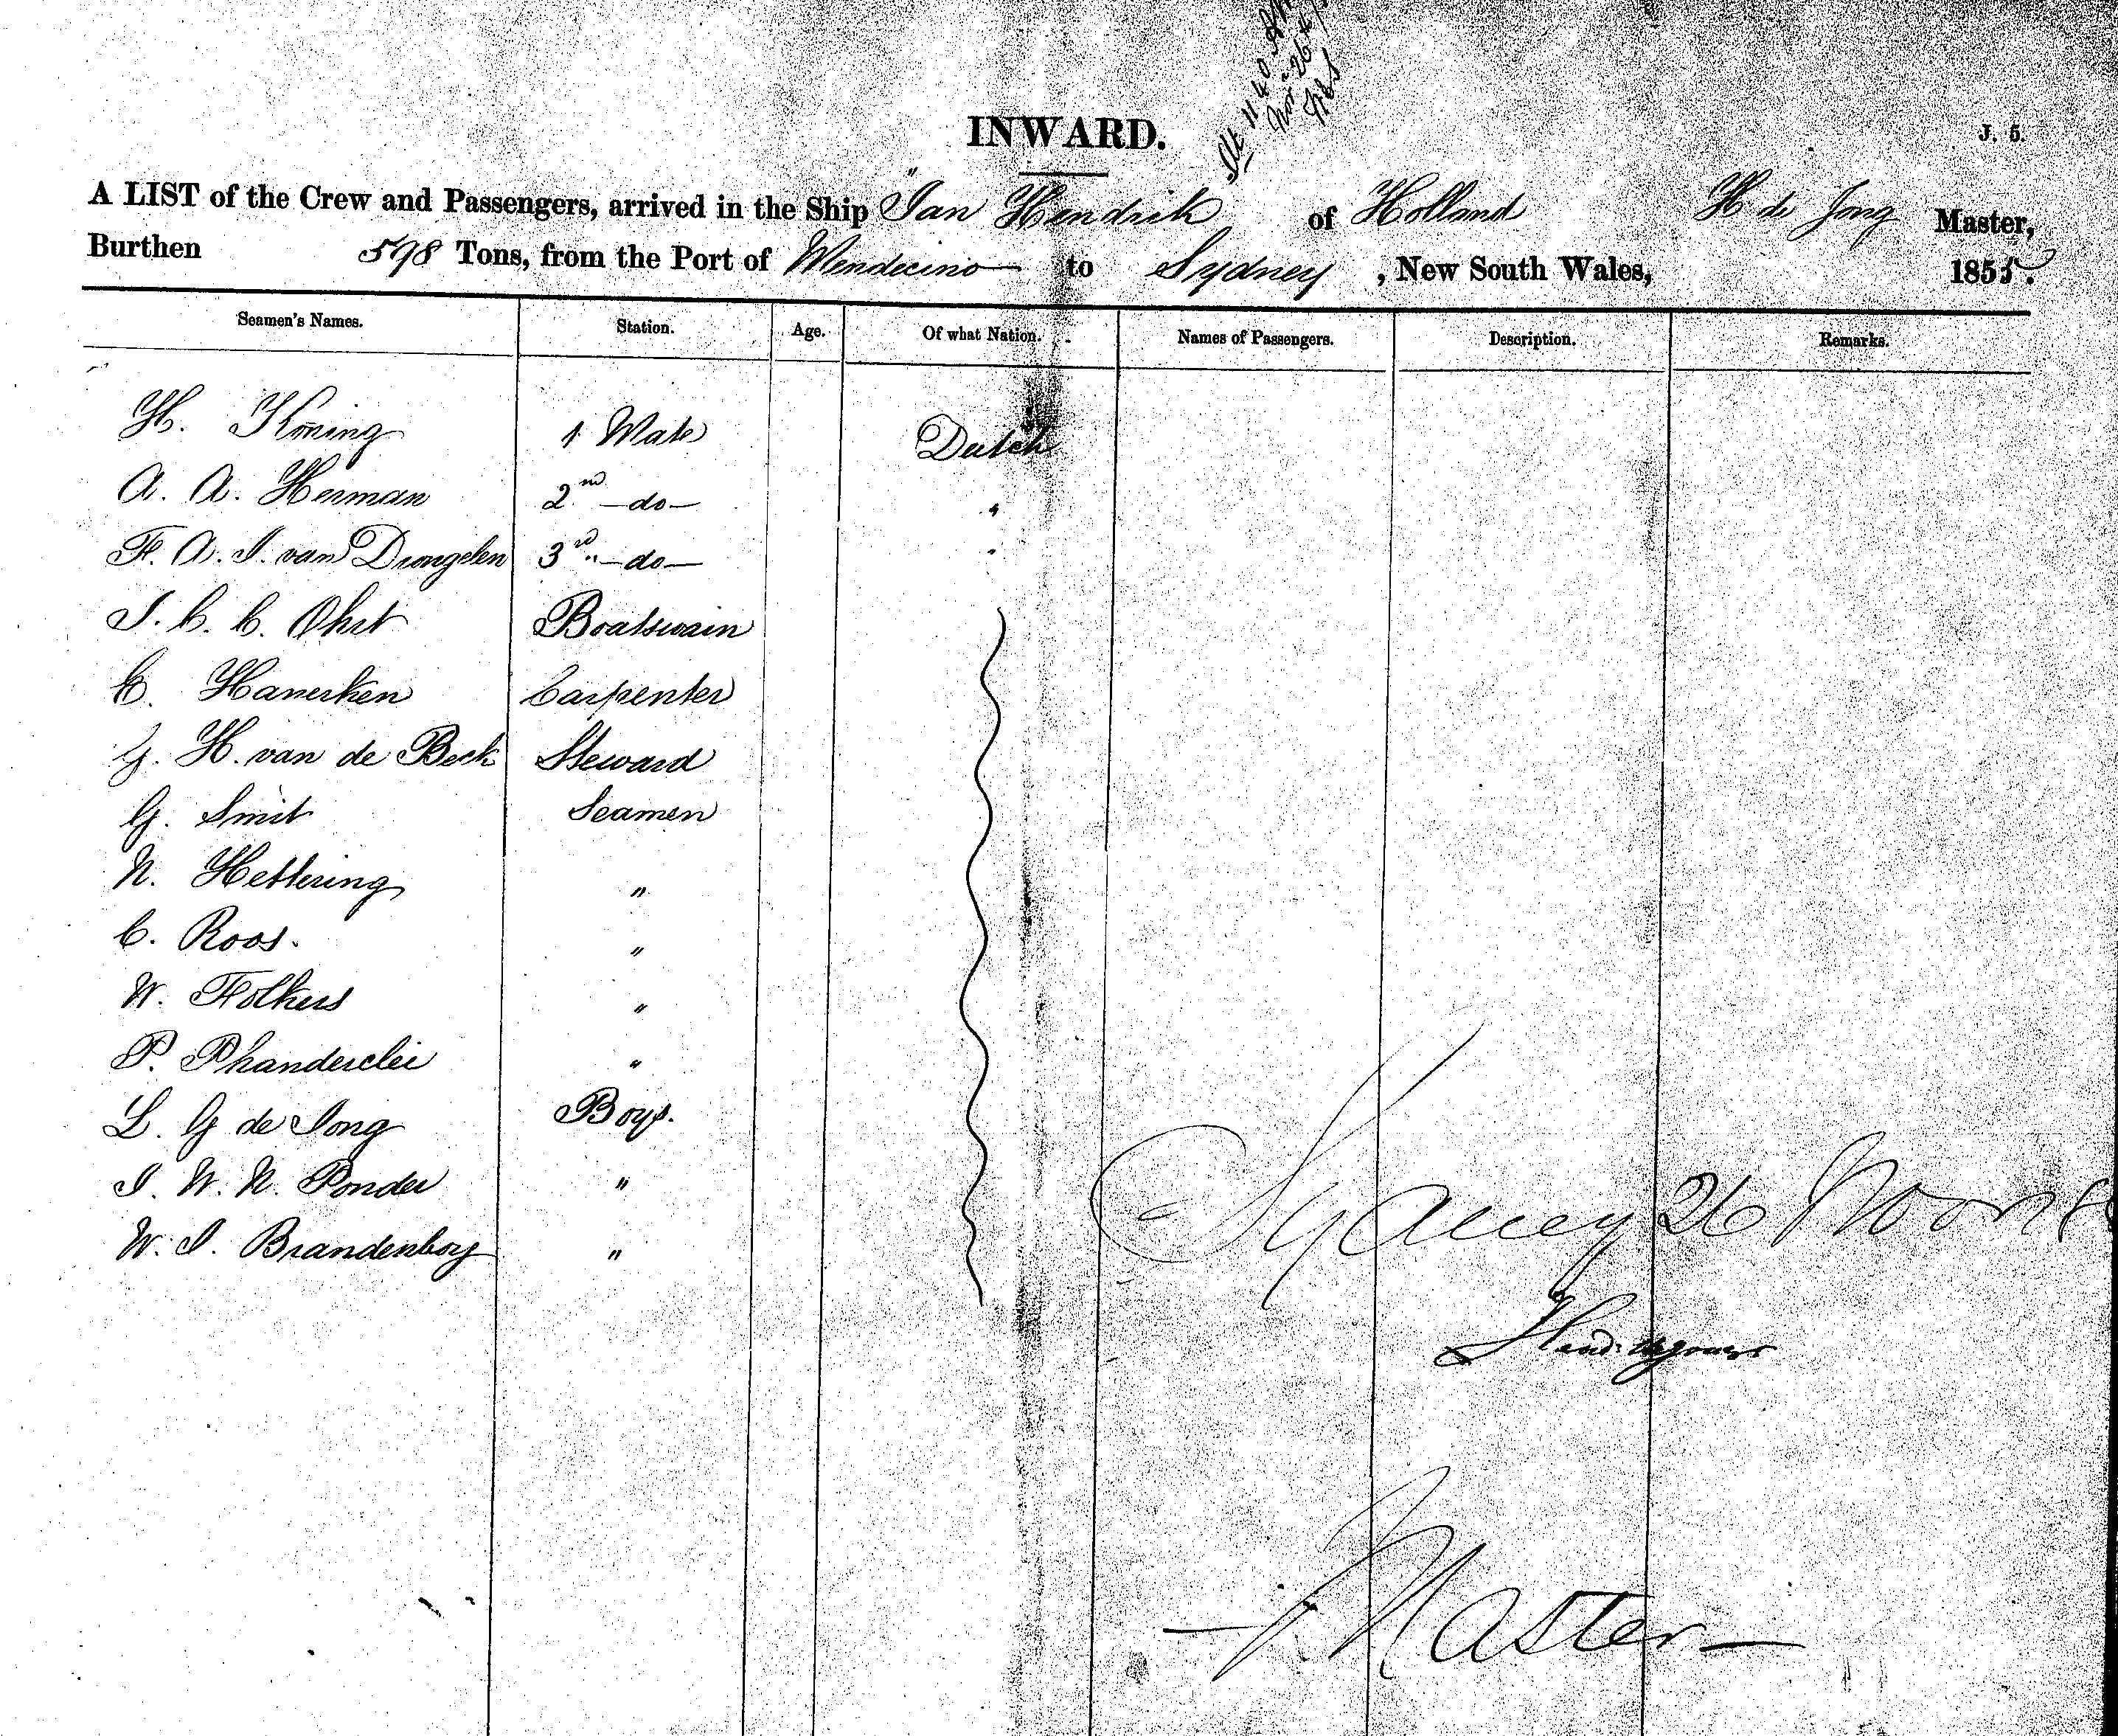 At 11 40
Nov 26th
INWARD.
J. 5.
A LIST of the Crew and Passengers, arrived in the Ship "Jan Hendrik of Holland H de Jong Master,
Burthen 598 Tons, from the Port of Mendecino to Sydney, New South Wales, 1855.
Seamen's Names. Station. Age. Of what Nation. Names of Passengers. Description. Remarks.
H. Koning 1 Mate Dutch
A. A. Herman 2nd -do- "
F. A. J. van Drongelen 3rd -do- "
J. C. C. Ohst Boatswain
C. Hanerken Carpenter
G. H. van de Beek Steward
G. Smit Seamen
N. Hettering "
C. Roos. "
W. Folkers "
P. Phanderclei "
L. G de Jong Boys.
J. W. N. Ponder "
W. J. Brandenborg "
Sydney 26 Nov
Master